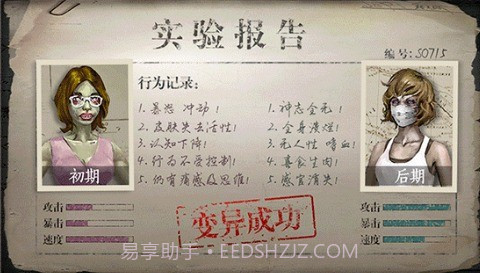 实验报告
编号:S0715
行为记录:
1.暴怒 冲动!
2.皮肤失去活性!
3.认知下降!
4.行为不受控制!
5.仍有痛感及思维!
1.神志全无!
2.全身溃烂!
3.无人性 嗜血!
4.喜食生肉!
5.感官消失!
初期
后期
攻击
暴击
速度
变异成功
攻击
暴击
速度
易享助手·EEDSHZJZ.COM